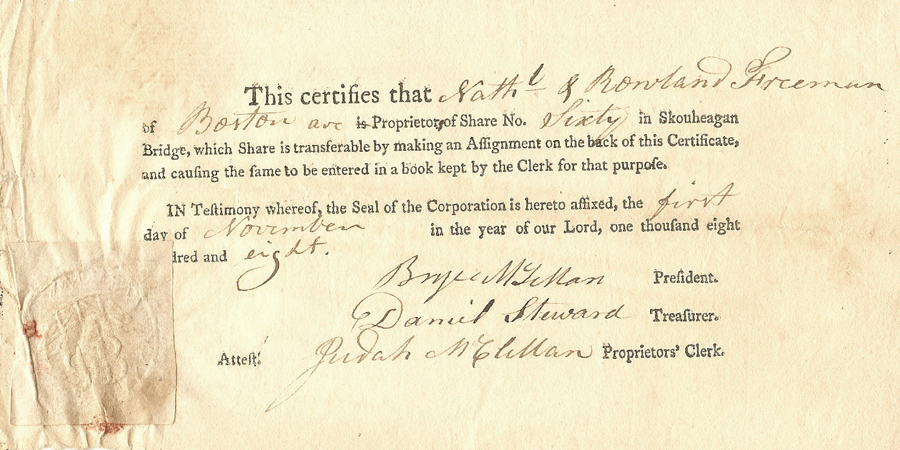 This certifies that Nathˡ & Rowland Freeman
of Boston are is Proprietors of Share No. Sixty in Skouheagan
Bridge, which Share is transferable by making an Aſſignment on the back of this Certificate,
and cauſing the ſame to be entered in a book kept by the Clerk for that purpoſe.
IN Teſtimony whereof, the Seal of the Corporation is hereto affixed, the first
day of November in the year of our Lord, one thouſand eight
dred and eight.
Bryce McLellan Preſident.
Daniel Steward Treaſurer.
Atteſt. Judah McClellan Proprietors' Clerk.